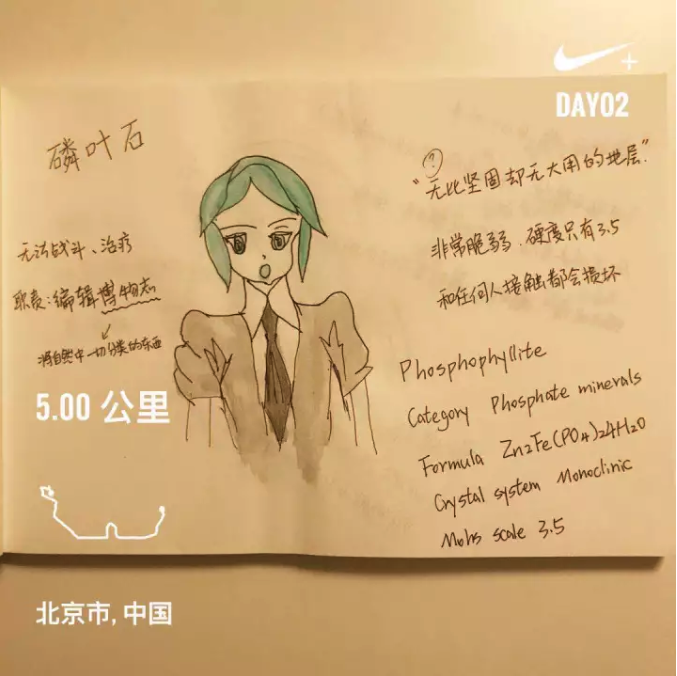 DAY02
磷叶石
无法战斗、治疗
职责:编辑博物志
将自然中一切分类的东西
5.00 公里
北京市, 中国
?
“无比坚固却无大用的地层.”
非常脆弱,硬度只有3.5
和任何人接触都会损坏
Phosphophyllite
Category Phosphate minerals
Formula Zn2Fe(PO4)24H2O
Crystal system Monoclinic
Mohs scale 3.5